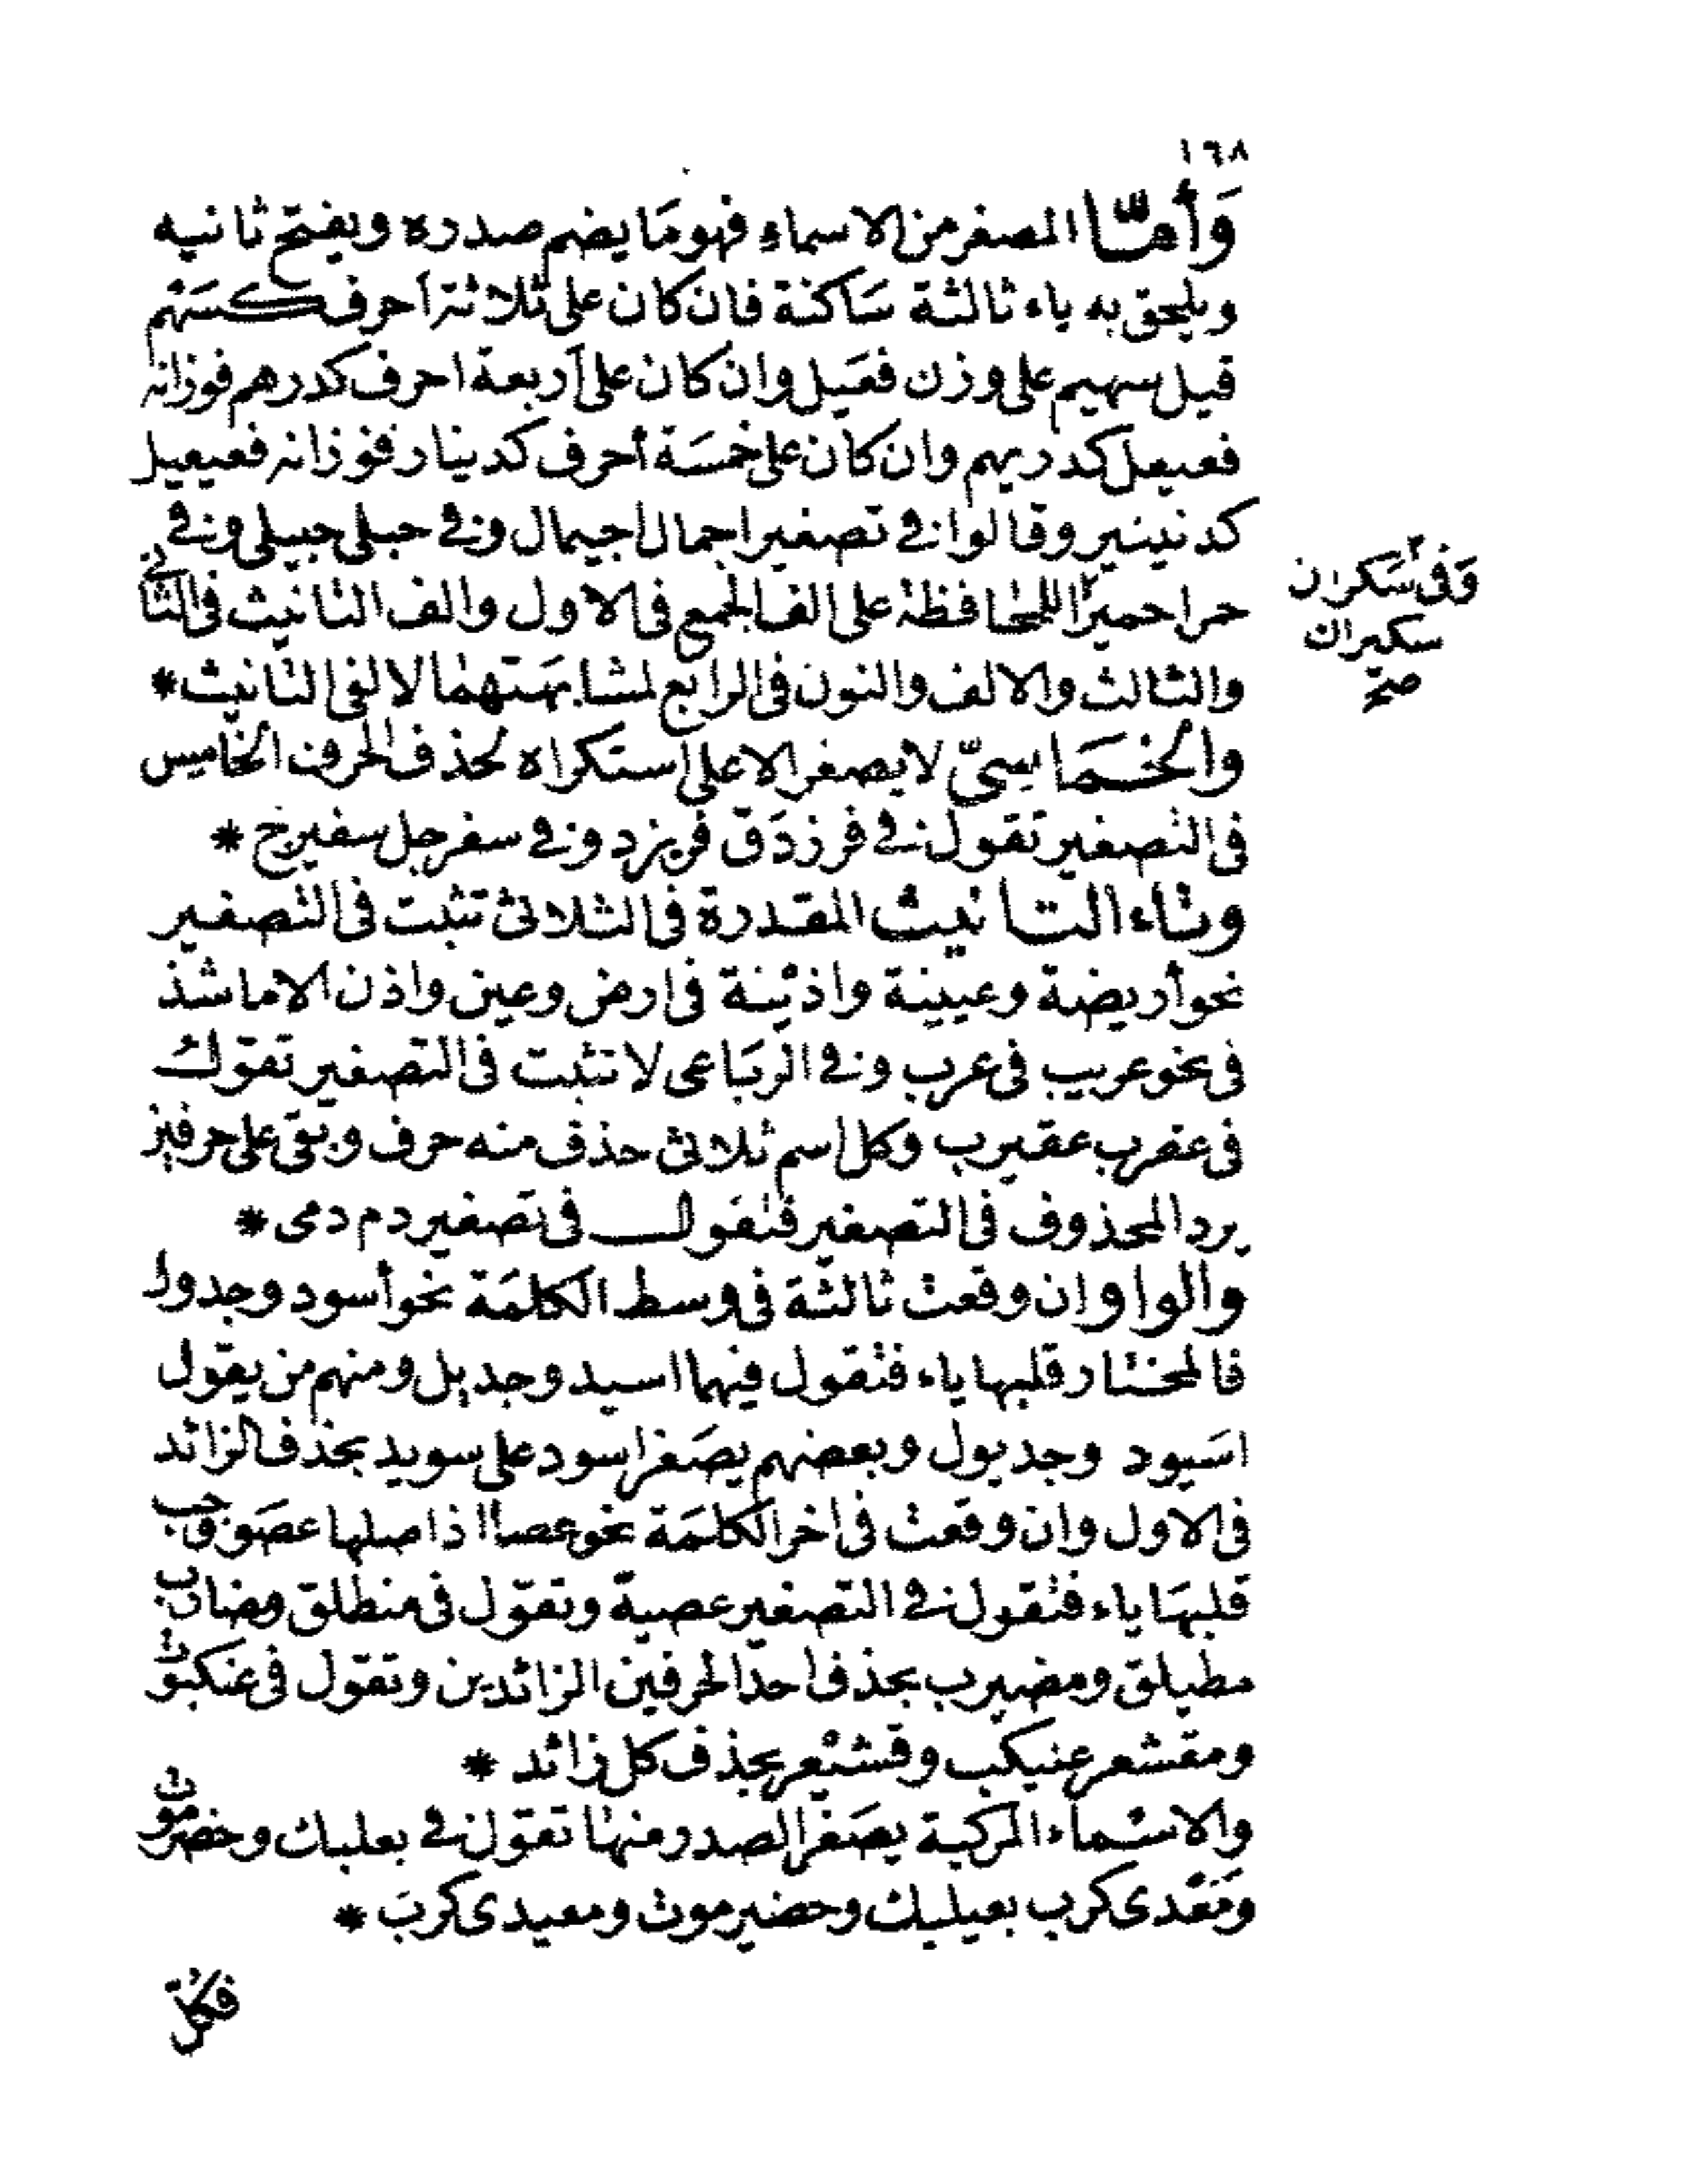 ١٦٨
وَأمّا المصغر من الاسماء فهو مَا يضم صدره ويفتح ثانيه
ويلحق به ياء ثالثة سَاكنة فان كان على ثلاثة احرف كسَهم
قيل سهيم على وزن فعَيل وان كان على اربعة احرف كدرهم فوزانه
فعيعل كدريهم وان كان على خمسَة أحرف كدينار فوزانه فعيعيل
كدنينير وقالوا فى تصغير اجمال اجيمال وفى حبلى حبيلى وفى
حمرا حميرا للمحافظة على الف الجمع فى الاول والف التانيث فى الثانى
وَفى سَكران
سكيران
صح
والثالث والالف والنون فى الرابع لمشابهَتهما لالفى التانيث *
والخمَاسِىّ لا يصغر الا على استكراه لحذف الحرف الخامس
فى التصغير تقول فى فرزدَق فريزد وفى سفرجل سفيرج *
وتاء التانيث المقدرة فى الثلاثى تثبت فى التصغير
نحو أريضة وعيينة واذيْنة فى ارض وعين واذن الا ما شذ
فى نحو عريب فى عرب وفى الربَاعى لا تثبت فى التصغير تقول
فى عقرب عقيرب وكل اسم ثلاثى حذف منه حرف وبقى على حرفين
يرد المحذوف فى التصغير فتقَول فى تصَغير دم دمى *
والواو ان وقعت ثالثة فى وسط الكلمَة نحو أسود وجدول
فالمختار قلبها ياء فتقول فيهما اسيد وجديل ومنهم من يقول
اسَيود وجديول وبعضهم يصَغر اسود على سويد بحذف الزائد
فى الاول وان وقعت فى اخر الكلمَة نحو عصا اذ اصلها عصَو وجب
قلبهَا ياء فتقول فى التصغير عصية وتقول فى منطلق ومضارب
مطيلق ومضيرب بحذف احد الحرفين الزائدين وتقول فى عنَكبوت
ومقشعر عنيكب وقشيْعر بحذف كل زائد *
والاسْماء المركبة يصَغر الصدر منها تقول فى بعلبك وحضرموت
ومَعْدى كرب بعيلبك وحضيرموت ومعيدى كربَ *